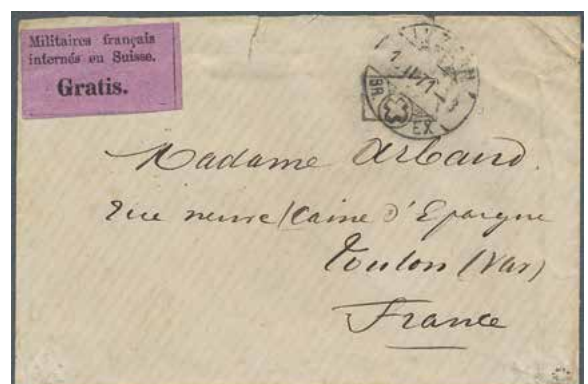 Militaires français
internés en Suisse.
Gratis.
BR. EX.
Madame Arbaud.
Rue neuve / Caisse d'Epargne
Toulon (Var)
France